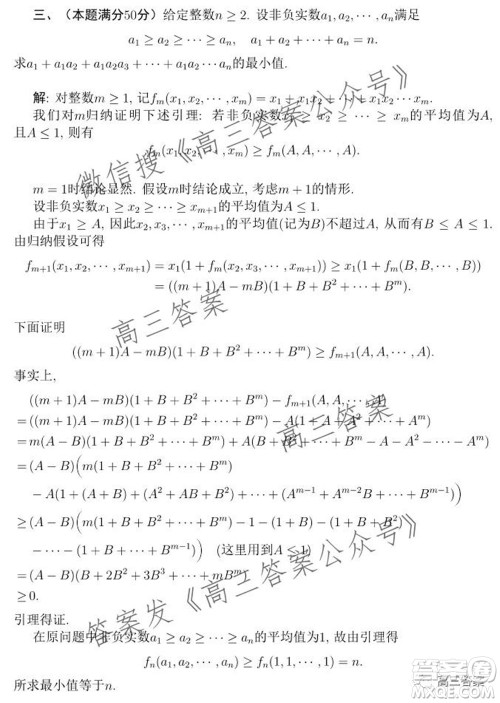 三、（本题满分50分）给定整数n ≥ 2. 设非负实数a₁, a₂, ⋯, aₙ满足
a₁ ≥ a₂ ≥ ⋯ ≥ aₙ, a₁ + a₂ + ⋯ + aₙ = n.
求a₁ + a₁a₂ + a₁a₂a₃ + ⋯ + a₁a₂⋯aₙ的最小值.
解: 对整数m ≥ 1, 记fₘ(x₁, x₂, ⋯, xₘ) = x₁ + x₁x₂ + ⋯ + x₁x₂⋯xₘ.
我们对m归纳证明下述引理: 若非负实数x₁ ≥ x₂ ≥ ⋯ ≥ xₘ的平均值为A,
且A ≤ 1, 则有
fₘ(x₁, x₂, ⋯, xₘ) ≥ fₘ(A, A, ⋯, A).
m = 1时结论显然. 假设m时结论成立, 考虑m + 1的情形.
设非负实数x₁ ≥ x₂ ≥ ⋯ ≥ xₘ₊₁的平均值为A ≤ 1.
由于x₁ ≥ A, 因此x₂, x₃, ⋯, xₘ₊₁的平均值(记为B)不超过A, 从而有B ≤ A ≤ 1.
由归纳假设可得
fₘ₊₁(x₁, x₂, ⋯, xₘ₊₁) = x₁(1 + fₘ(x₂, x₃, ⋯, xₘ₊₁)) ≥ x₁(1 + fₘ(B, B, ⋯, B))
= ((m + 1)A − mB)(1 + B + B² + ⋯ + Bᵐ).
下面证明
((m + 1)A − mB)(1 + B + B² + ⋯ + Bᵐ) ≥ fₘ₊₁(A, A, ⋯, A).
事实上,
((m + 1)A − mB)(1 + B + B² + ⋯ + Bᵐ) − fₘ₊₁(A, A, ⋯, A)
=((m + 1)A − mB)(1 + B + B² + ⋯ + Bᵐ) − A(1 + A + A² + ⋯ + Aᵐ)
=m(A − B)(1 + B + B² + ⋯ + Bᵐ) + A(B + B² + ⋯ + Bᵐ − A − A² − ⋯ − Aᵐ)
=(A − B)(m(1 + B + B² + ⋯ + Bᵐ)
− A(1 + (A + B) + (A² + AB + B²) + ⋯ + (Aᵐ⁻¹ + Aᵐ⁻²B + ⋯ + Bᵐ⁻¹)))
≥(A − B)(m(1 + B + B² + ⋯ + Bᵐ) − 1 − (1 + B) − (1 + B + B²)
− ⋯ − (1 + B + ⋯ + Bᵐ⁻¹)) (这里用到A ≤ 1)
=(A − B)(B + 2B² + 3B³ + ⋯ + mBᵐ)
≥0.
引理得证.
在原问题中非负实数a₁ ≥ a₂ ≥ ⋯ ≥ aₙ的平均值为1, 故由引理得
fₙ(a₁, a₂, ⋯, aₙ) ≥ fₙ(1, 1, ⋯, 1) = n.
所求最小值等于n.
微信搜《高三答案公众号》
高三答案
高三答案
答案发《高三答案公众号》
高三答案